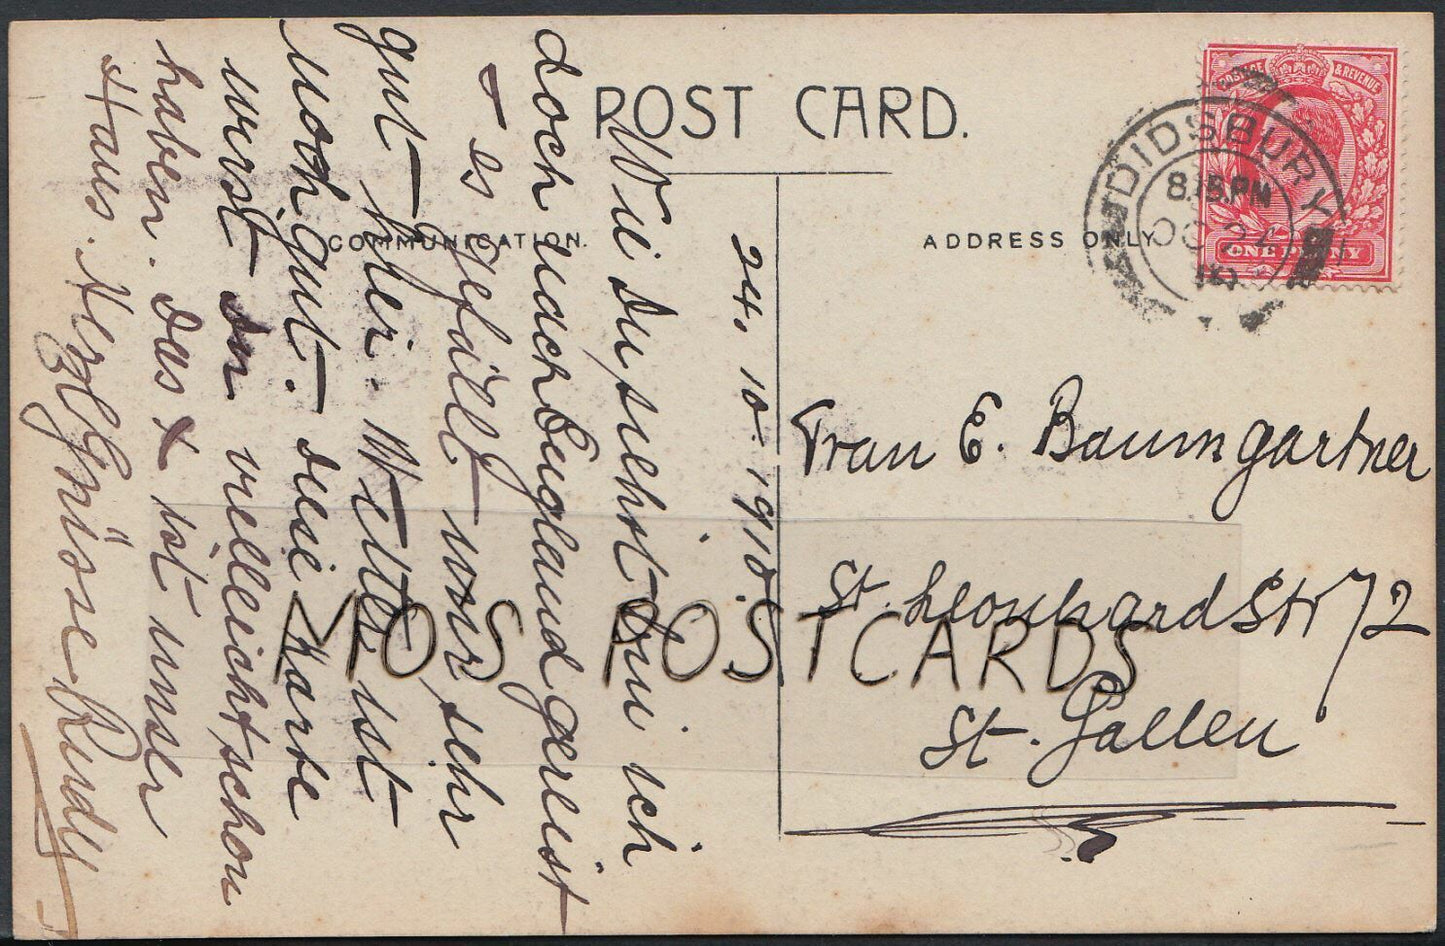 POST CARD.
COMMUNICATION.
ADDRESS ONLY
POSTAGE & REVENUE
ONE PENNY
DIDSBURY
8.15.PM
OC 24
10
24. 10. 1910.
Wie Du siehst bin ich
doch nach England gereist
& es gefällt mir sehr
gut hier. Wetter ist
noch gut. diese Karte
wirst Du vielleicht schon
haben. das x ist unser
Haus. Herzl Grüsse Rudy
Frau E. Baumgartner
St. Leonhard Str 72
St. Gallen
MOS POSTCARDS